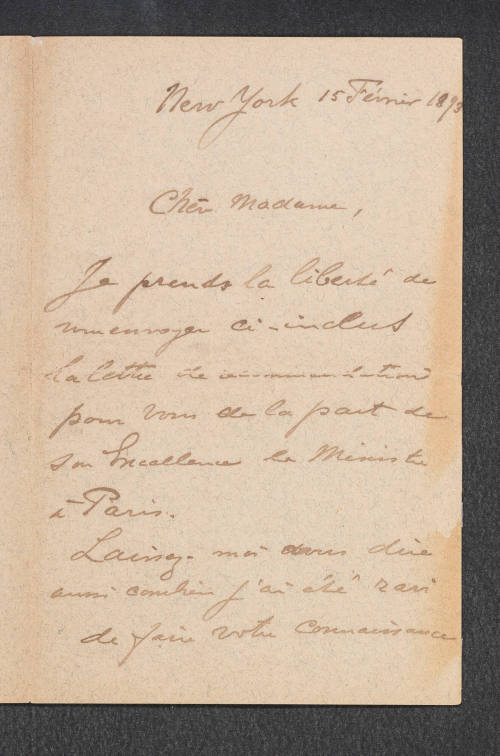 New York 15 Février 1893
Chère Madame,
Je prends la liberté de
vous envoyer ci-inclus
la lettre de recommandation
pour vous de la part de
Son Excellence le Ministre
à Paris.
Laissez-moi vous dire
aussi combien j'ai été ravi
de faire votre connaissance